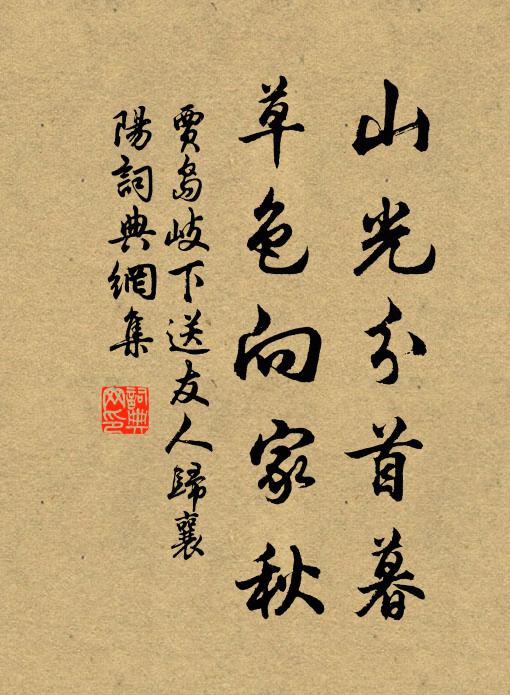 山光分首暮
草色向家秋
賈島岐下送友人歸襄
陽詞典網集
詞典網印